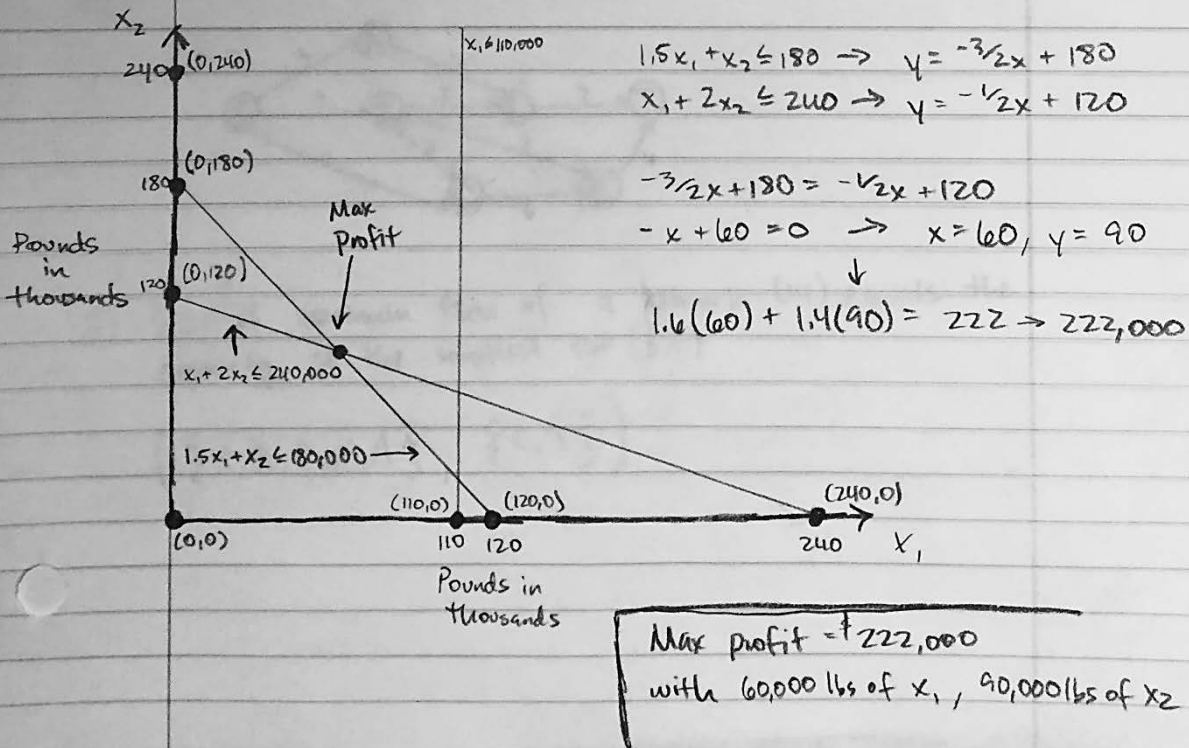 X₂
240 (0,240)
x₁ ≤ 110,000
(0,180)
180
Max
Profit
Pounds
in
thousands
120 (0,120)
x₁ + 2x₂ ≤ 240,000
1.5x₁ + x₂ ≤ 180,000 →
(0,0)
(110,0) (120,0) (240,0)
110 120 240 X₁
Pounds in
thousands
1.5x₁ + x₂ ≤ 180 → y = -3/2x + 180
x₁ + 2x₂ ≤ 240 → y = -1/2x + 120
-3/2x + 180 = -1/2x + 120
-x + 60 = 0 → x = 60, y = 90
↓
1.6(60) + 1.4(90) = 222 → 222,000
Max profit = $222,000
with 60,000 lbs of x₁, 90,000 lbs of x₂